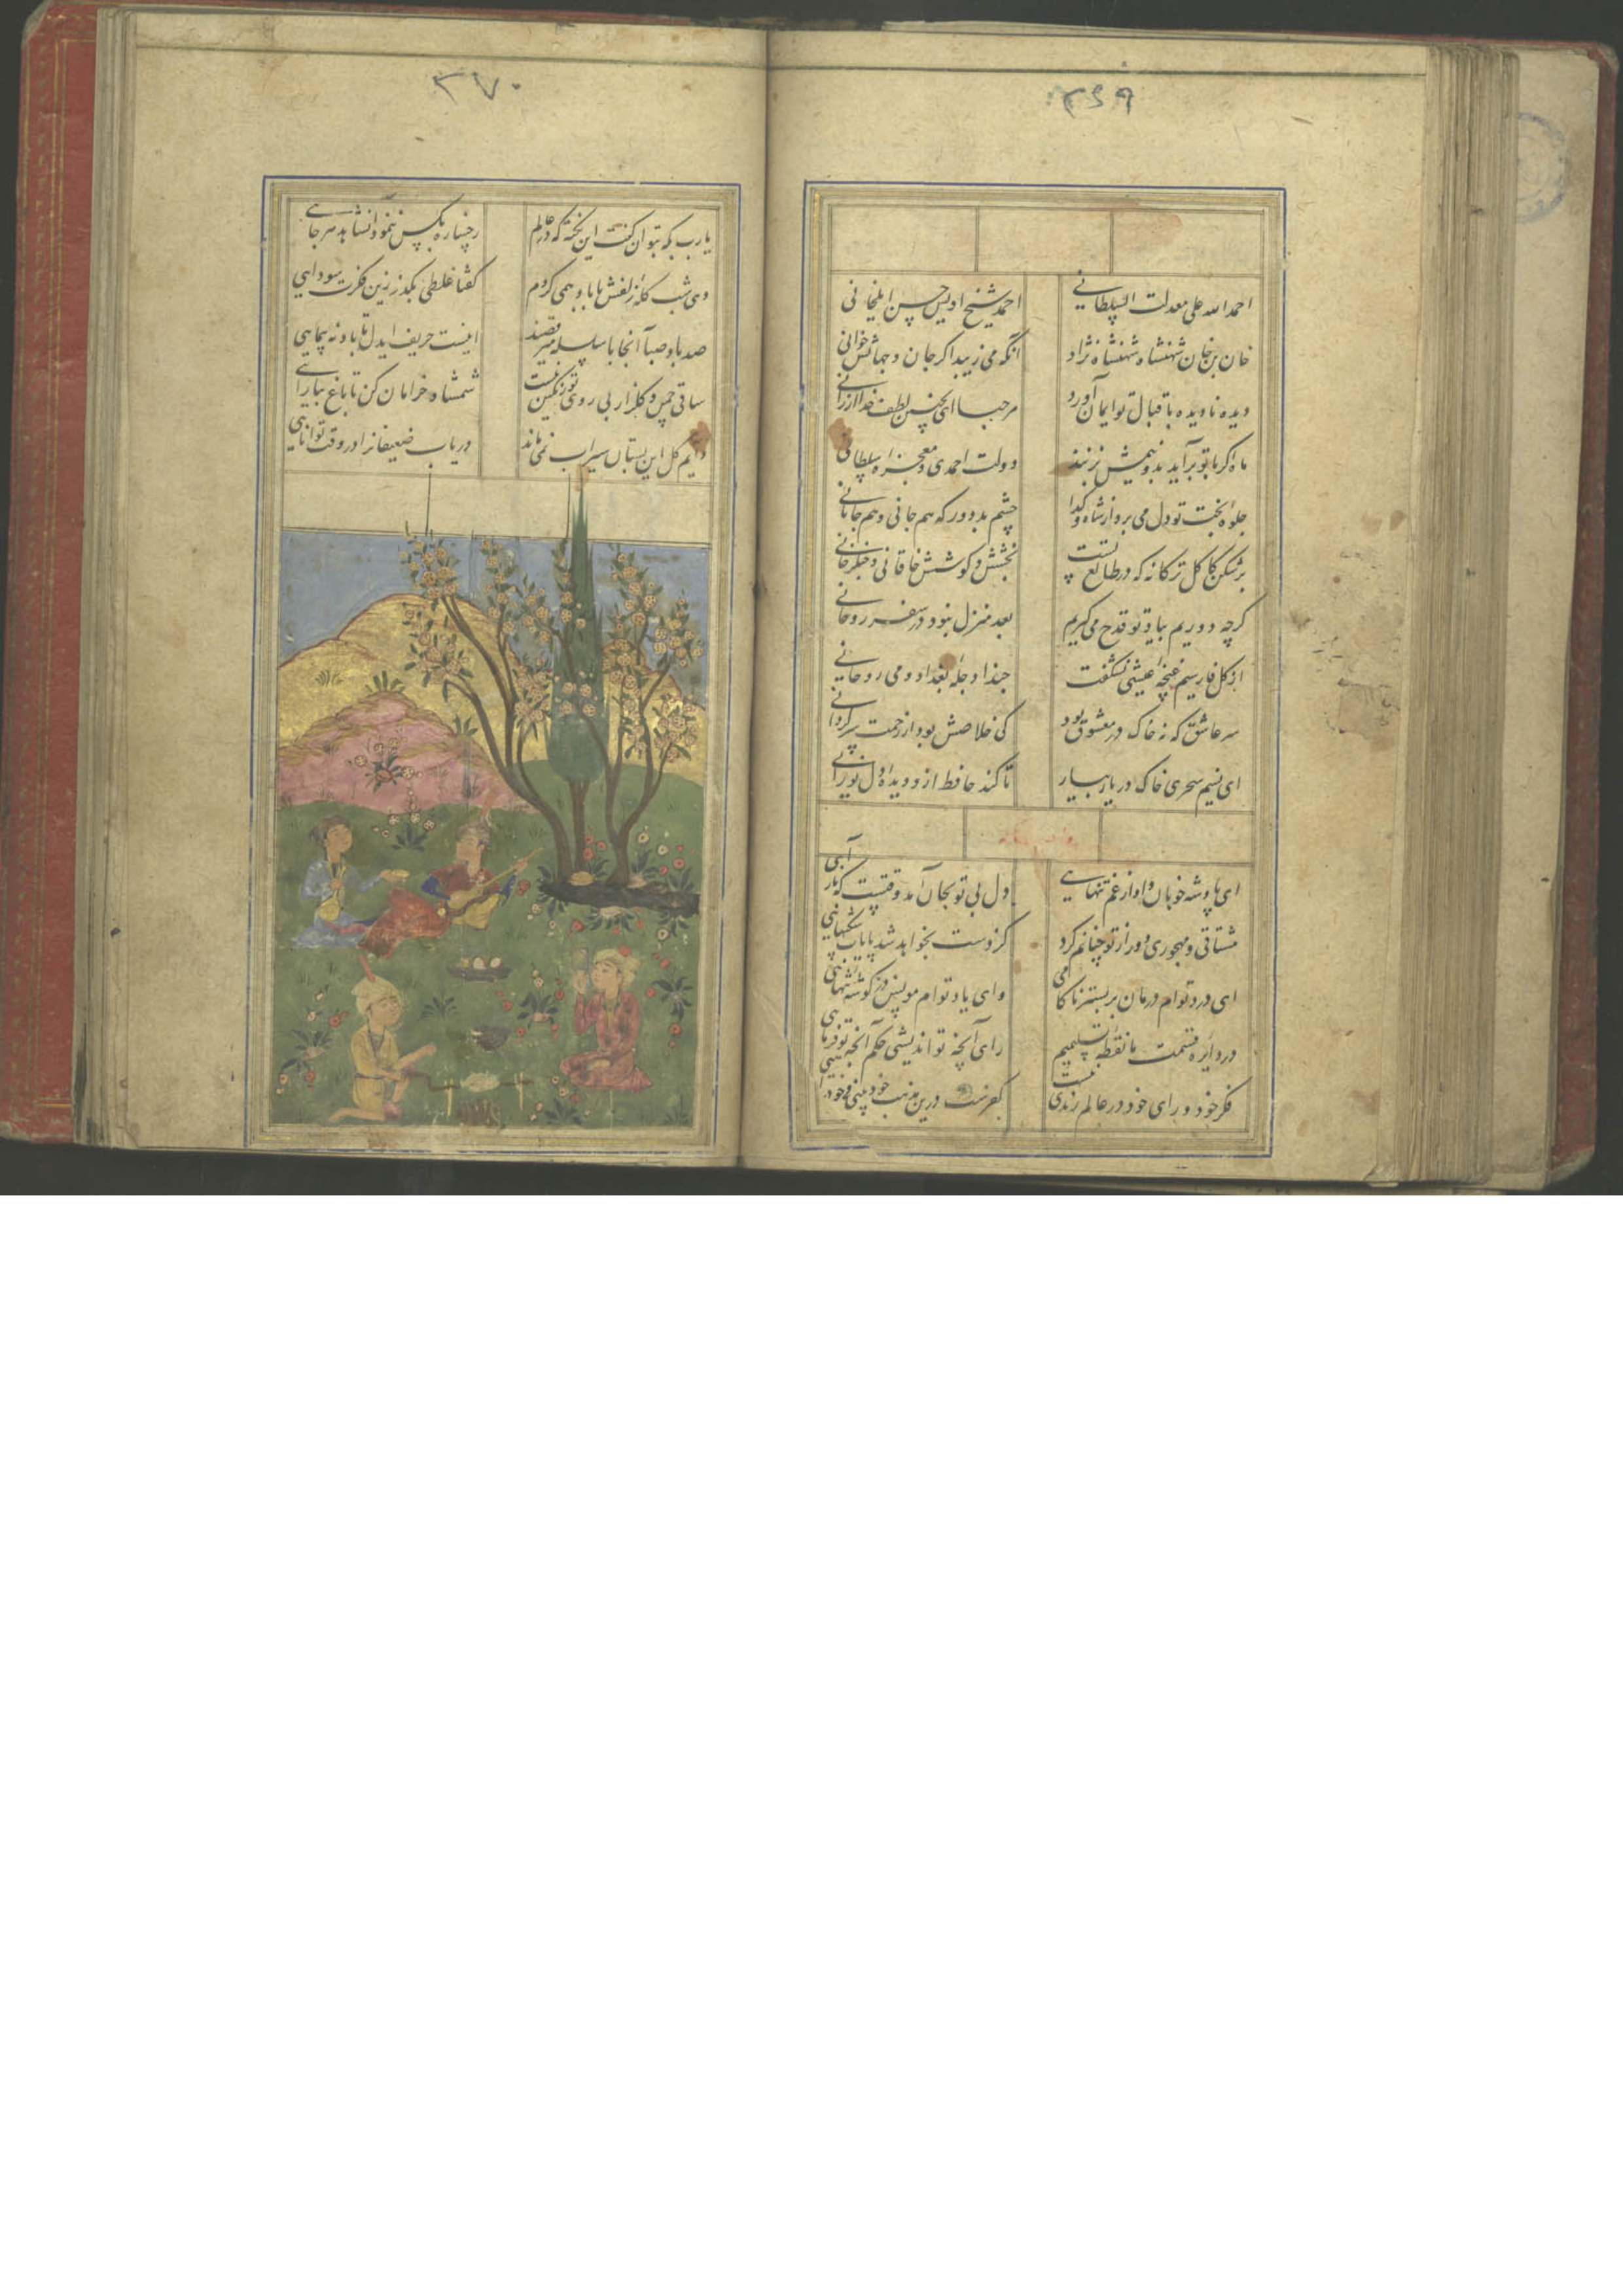 ۳۶۹
احمد الله علی معدلت السلطانی
احمد شیخ اویس حسن ایلخانی
خان بن خان شهنشاه شهنشاه نژاد
آنکه می زیبد اکر جان و جهانش خوانی
دیده نادیده باقبال تو ایمان آورد
مرحبا ای بچنین لطف خدا ارزانی
ماه اکر با تو برآید بدو نیمش بزنند
دولت احمدی و معجزه سلطانی
جلوه بخت تو دل می برد از شاه و کدا
چشم بد دور که هم جانی و هم جانانی
برشکن کاکل ترکانه که در طالع تست
بخشش و کوشش خاقانی و چنکزخانی
کرچه دوریم بیاد تو قدح می کیریم
بعد منزل نبود در سفر روحانی
از کل فارسیم غنچه عیشی نشکفت
حبذا دجله بغداد و می روحانی
سر عاشق که نه خاک در معشوق بود
کی خلاصش بود از زحمت سرکردانی
ای نسیم سحری خاک در یار بیار
تا کند حافظ ازو دیده دل نورانی
ای پادشه خوبان داد از غم تنهایی
دل بی تو بجان آمد وقتست که باز آیی
مشتاقی و مهجوری دور از تو چنانم کرد
کز دست بخواهد شد پایاب شکیبایی
ای درد توام درمان بر بستر ناکامی
وای یاد توام مونس در کوشه تنهایی
در دایره قسمت ما نقطه تسلیمیم
رای آنچه تو اندیشی حکم آنچه تو فرمایی
فکر خود و رای خود در عالم رندی نیست
کفرست درین مذهب خود بینی و خود رایی
۳۷۰
یارب بکه بتوان کفت این نکته که در عالم
رخساره بکس ننمود آن شاهد هر جایی
دی شب کله زلفش با باد همی کردم
کفتا غلطی بکذر زین فکرت سودایی
صد باد صبا آنجا با سلسله می رقصند
اینست حریف ایدل تا باد نه پیمایی
ساقی چمن و کلزار بی روی تو رنکین نیست
شمشاد خرامان کن تا باغ بیارایی
دایم کل این بستان سیراب نمی ماند
دریاب ضعیفانرا در وقت توانایی